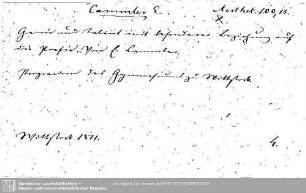 Cammler E. Aesthet. 100, 15.
Genie und Talent mit besonderer Beziehung auf
die Poesie. Von E. Cammler.
Programm des Gymnasiums zu Wittstock
Wittstock 1871. 4.
Sächsische Landesbibliothek -
Staats- und Universitätsbibliothek Dresden